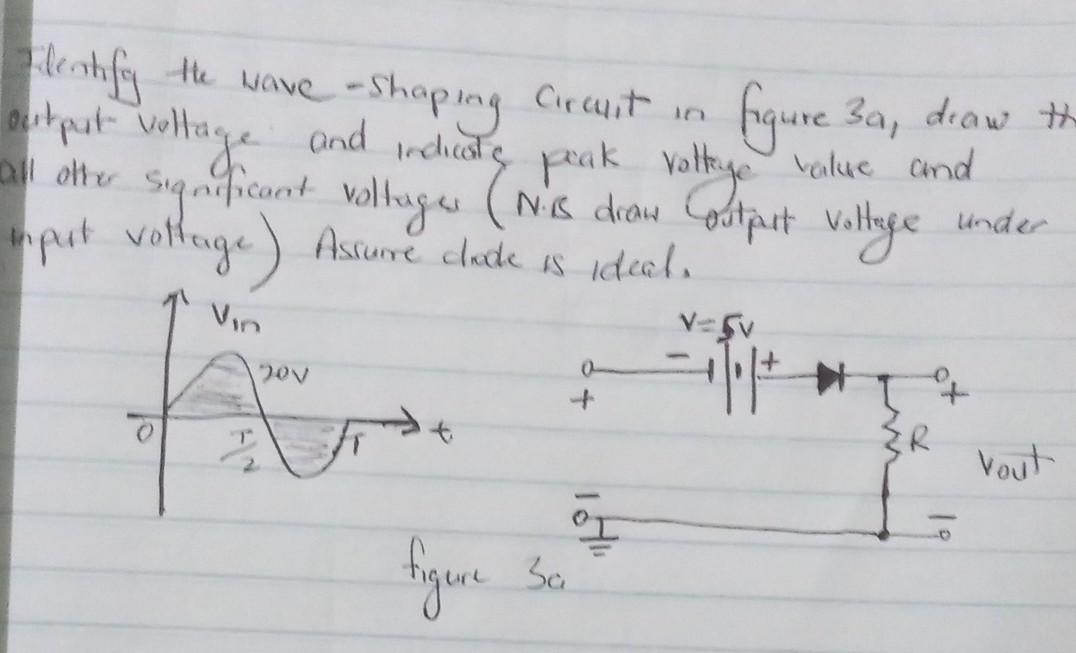 Identify the wave-shaping circuit in figure 3a, draw th
output voltage and indicate peak voltage value and
all other significant voltages (N.B draw output voltage under
input voltage) Assume diode is ideal.
Vin
20V
0
T/2
T
t
V=5V
- +
+
+
R
Vout
-
-
figure 3a